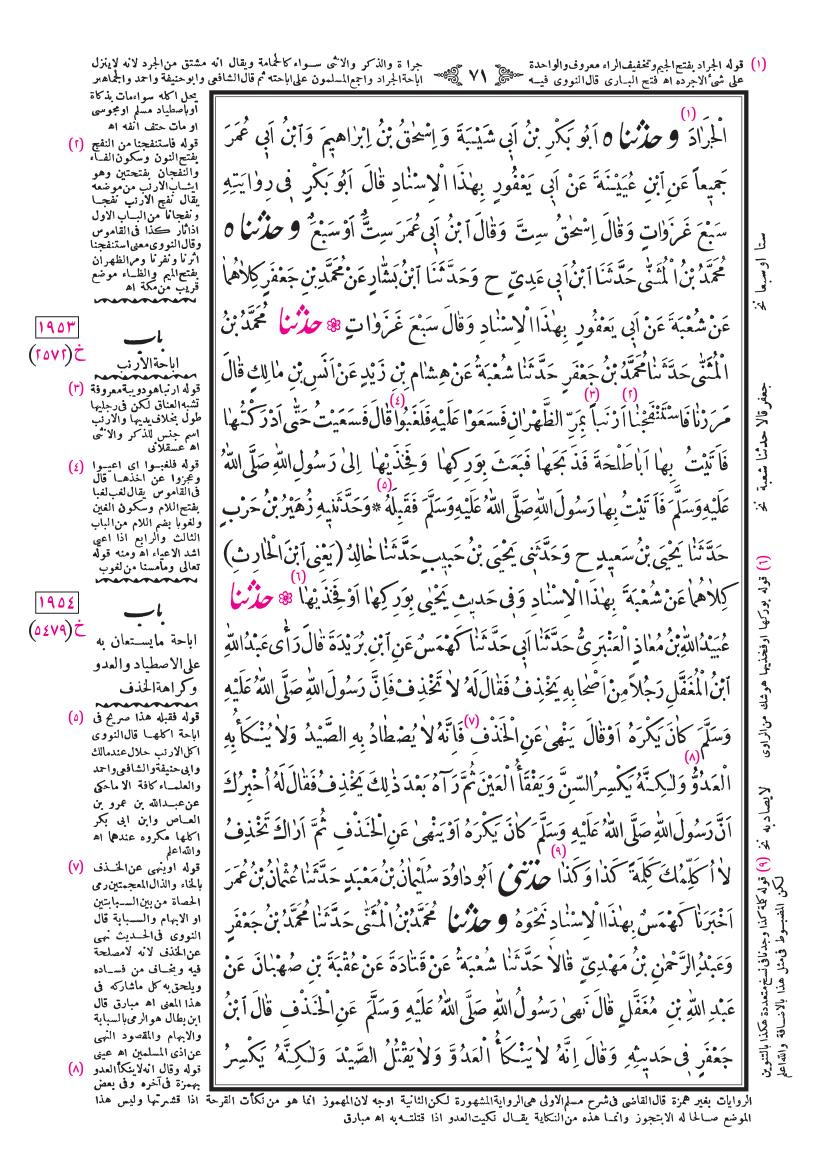 (١) قوله الجراد بفتح الجيم وتخفيف الراء معروف والواحدة
على شئ الاجرده اه فتح البارى قال النووى فيه
٧١
جرادة والذكر والانثى سواء كالحمامة ويقال انه مشتق من الجرد لانه لاينزل
اباحة الجراد واجمع المسلمون على اباحته ثم قال الشافعى وابوحنيفة واحمد والجماهير
(١)
الْجَرَادَ وحدثنا ٥ اَبُو بَكْرِ بْنُ اَبِى شَيْبَةَ وَ اِسْحٰقُ بْنُ اِبْرَاهِيمَ وَابْنُ اَبِى عُمَرَ
جَمِيعاً عَنِ ابْنِ عُيَيْنَةَ عَنْ اَبِى يَعْفُورٍ بِهٰذَا الْاِسْنَادِ قَالَ اَبُو بَكْرٍ فِى رِوَايَتِهِ
سَبْعَ غَزَوَاتٍ وَقَالَ اِسْحٰقُ سِتَّ وَقَالَ ابْنُ اَبِى عُمَرَ سِتَّ اَوْ سَبْعَ وحدثنا ٥
مُحَمَّدُ بْنُ الْمُثَنّٰى حَدَّثَنَا ابْنُ اَبِى عَدِيٍّ ح وَحَدَّثَنَا ابْنُ بَشَّارٍ عَنْ مُحَمَّدِ بْنِ جَعْفَرٍ كِلَاهُمَا
عَنْ شُعْبَةَ عَنْ اَبِى يَعْفُورٍ بِهٰذَا الْاِسْنَادِ وَقَالَ سَبْعَ غَزَوَاتٍ حدثنا مُحَمَّدُ بْنُ
الْمُثَنّٰى حَدَّثَنَا مُحَمَّدُ بْنُ جَعْفَرٍ حَدَّثَنَا شُعْبَةُ عَنْ هِشَامِ بْنِ زَيْدٍ عَنْ اَنَسِ بْنِ مَالِكٍ قَالَ
مَرَرْنَا فَاسْتَنْفَجْنَا (٢) اَرْنَباً (٣) بِمَرِّ الظَّهْرَانِ فَسَعَوْا عَلَيْهِ فَلَغَبُوا (٤) قَالَ فَسَعَيْتُ حَتّٰى اَدْرَكْتُهَا
فَاَتَيْتُ بِهَا اَبَا طَلْحَةَ فَذَبَحَهَا فَبَعَثَ بِوَرِكِهَا وَفَخِذَيْهَا اِلٰى رَسُولِ اللهِ صَلَّى اللهُ
عَلَيْهِ وَسَلَّمَ فَاَتَيْتُ بِهَا رَسُولَ اللهِ صَلَّى اللهُ عَلَيْهِ وَسَلَّمَ فَقَبِلَهُ (٥) * وَحَدَّثَنِيهِ زُهَيْرُ بْنُ حَرْبٍ
حَدَّثَنَا يَحْيَى بْنُ سَعِيدٍ ح وَحَدَّثَنِى يَحْيَى بْنُ حَبِيبٍ حَدَّثَنَا خَالِدٌ (يَعْنِى ابْنَ الْحَارِثِ)
كِلَاهُمَا عَنْ شُعْبَةَ بِهٰذَا الْاِسْنَادِ وَفِى حَدِيثِ يَحْيٰى بِوَرِكِهَا اَوْ فَخِذَيْهَا (٦) حدثنا
عُبَيْدُ اللهِ بْنُ مُعَاذٍ الْعَنْبَرِىُّ حَدَّثَنَا اَبِى حَدَّثَنَا كَهْمَسٌ عَنِ ابْنِ بُرَيْدَةَ قَالَ رَأٰى عَبْدُ اللهِ
ابْنُ الْمُغَفَّلِ رَجُلاً مِنْ اَصْحَابِهِ يَخْذِفُ فَقَالَ لَهُ لَا تَخْذِفْ فَاِنَّ رَسُولَ اللهِ صَلَّى اللهُ عَلَيْهِ
وَسَلَّمَ كَانَ يَكْرَهُ اَوْ قَالَ يَنْهٰى عَنِ الْخَذْفِ (٧) فَاِنَّهُ لَا يُصْطَادُ بِهِ الصَّيْدُ وَلَا يُنْكَأُ بِهِ
(٨)
الْعَدُوُّ وَلٰكِنَّهُ يَكْسِرُ السِّنَّ وَيَفْقَأُ الْعَيْنَ ثُمَّ رَآهُ بَعْدَ ذٰلِكَ يَخْذِفُ فَقَالَ لَهُ اُخْبِرُكَ
اَنَّ رَسُولَ اللهِ صَلَّى اللهُ عَلَيْهِ وَسَلَّمَ كَانَ يَكْرَهُ اَوْ يَنْهٰى عَنِ الْخَذْفِ ثُمَّ اَرَاكَ تَخْذِفُ
لَا اُكَلِّمُكَ كَلِمَةً كَذَا وَكَذَا (٩) حدثنى اَبُو دَاوُدَ سُلَيْمَانُ بْنُ مَعْبَدٍ حَدَّثَنَا عُثْمَانُ بْنُ عُمَرَ
اَخْبَرَنَا كَهْمَسٌ بِهٰذَا الْاِسْنَادِ نَحْوَهُ وحدثنا مُحَمَّدُ بْنُ الْمُثَنّٰى حَدَّثَنَا مُحَمَّدُ بْنُ جَعْفَرٍ
وَعَبْدُ الرَّحْمٰنِ بْنُ مَهْدِيٍّ قَالَا حَدَّثَنَا شُعْبَةُ عَنْ قَتَادَةَ عَنْ عُقْبَةَ بْنِ صُهْبَانَ عَنْ
عَبْدِ اللهِ بْنِ مُغَفَّلٍ قَالَ نَهٰى رَسُولُ اللهِ صَلَّى اللهُ عَلَيْهِ وَسَلَّمَ عَنِ الْخَذْفِ قَالَ ابْنُ
جَعْفَرٍ فِى حَدِيثِهِ وَقَالَ اِنَّهُ لَا يَنْكَأُ الْعَدُوَّ وَلَا يَقْتُلُ الصَّيْدَ وَلٰكِنَّهُ يَكْسِرُ
يحل اكله سواء مات بذكاة
او باصطياد مسلم او مجوسى
او مات حتف انفه اه
(٢) قوله فاستنفجنا من النفج
بفتح النون وسكون الفاء
والنفجان بفتحتين وهو
ايثاب الارنب من موضعه
يقال نفج الارنب نفجا
ونفجانا من الباب الاول
اذا ثار كذا فى القاموس
وقال النووى معنى استنفجنا
اثرنا ونفرنا ومر الظهران
بفتح الميم والظاء موضع
قريب من مكة اه
١٩٥٣
خ (٢٥٧٢)
باب
اباحة الارنب
(٣) قوله ارنبا هو دويبة معروفة
تشبه العناق لكن فى رجليها
طول بخلاف يديها والارنب
اسم جنس للذكر والانثى
اه عسقلانى
(٤) قوله فلغبوا اى اعيوا
وعجزوا عن اخذها قال
فى القاموس يقال لغب لغبا
بفتح اللام وسكون الغين
ولغوبا بضم اللام من الباب
الثالث والرابع اذا اعيى
اشد الاعياء اه ومنه قوله
تعالى ومامسنا من لغوب
١٩٥٤
خ (٥٤٧٩)
باب
اباحة مايستعان به
على الاصطياد والعدو
وكراهة الخذف
(٥) قوله فقبله هذا صريح فى
اباحة اكلها قال النووى
اكل الارنب حلال عند مالك
وابى حنيفة والشافعى واحمد
والعلماء كافة الا ماحكى
عن عبد الله بن عمرو بن
العاص وابن ابى بكر
اكلها مكروه عندهما اه
والله اعلم
(٧) قوله اوينهى عن الخذف
بالخاء والذال المعجمتين رمى
الحصاة من بين السبابتين
او الابهام والسبابة قال
النووى فى الحديث نهى
عن الخذف لانه لامصلحة
فيه ويخاف من فساده
ويلحق به كل ماشاركه فى
هذا المعنى اه مبارق قال
ابن بطال هو الرمى بالسبابة
والابهام والمقصود النهى
عن اذى المسلمين اه عينى
(٨) قوله وقال انه لاينكأ العدو
بهمزة فى آخره وفى بعض
ستا اوسبعا نخ
جعفر قالا حدثنا شعبة نخ
(٦) قوله بوركها اوفخذيها هو شك من الراوى
لايصاد به نخ
(٩) قوله كلمة كذا وجدنا فى نسخ متعددة هكذا بالتنوين
لكن المضبوط فى مثل هذا بالاضافة والله اعلم
الروايات بغير همزة قال القاضى فى شرح مسلم الاولى هى الرواية المشهورة لكن الثانية اوجه لان المهموز انما هو من نكأت القرحة اذا قشرتها وليس هذا
الموضع صالحا له الابتجوز وانما هذه من النكاية يقال نكيت العدو اذا قتلته به اه مبارق